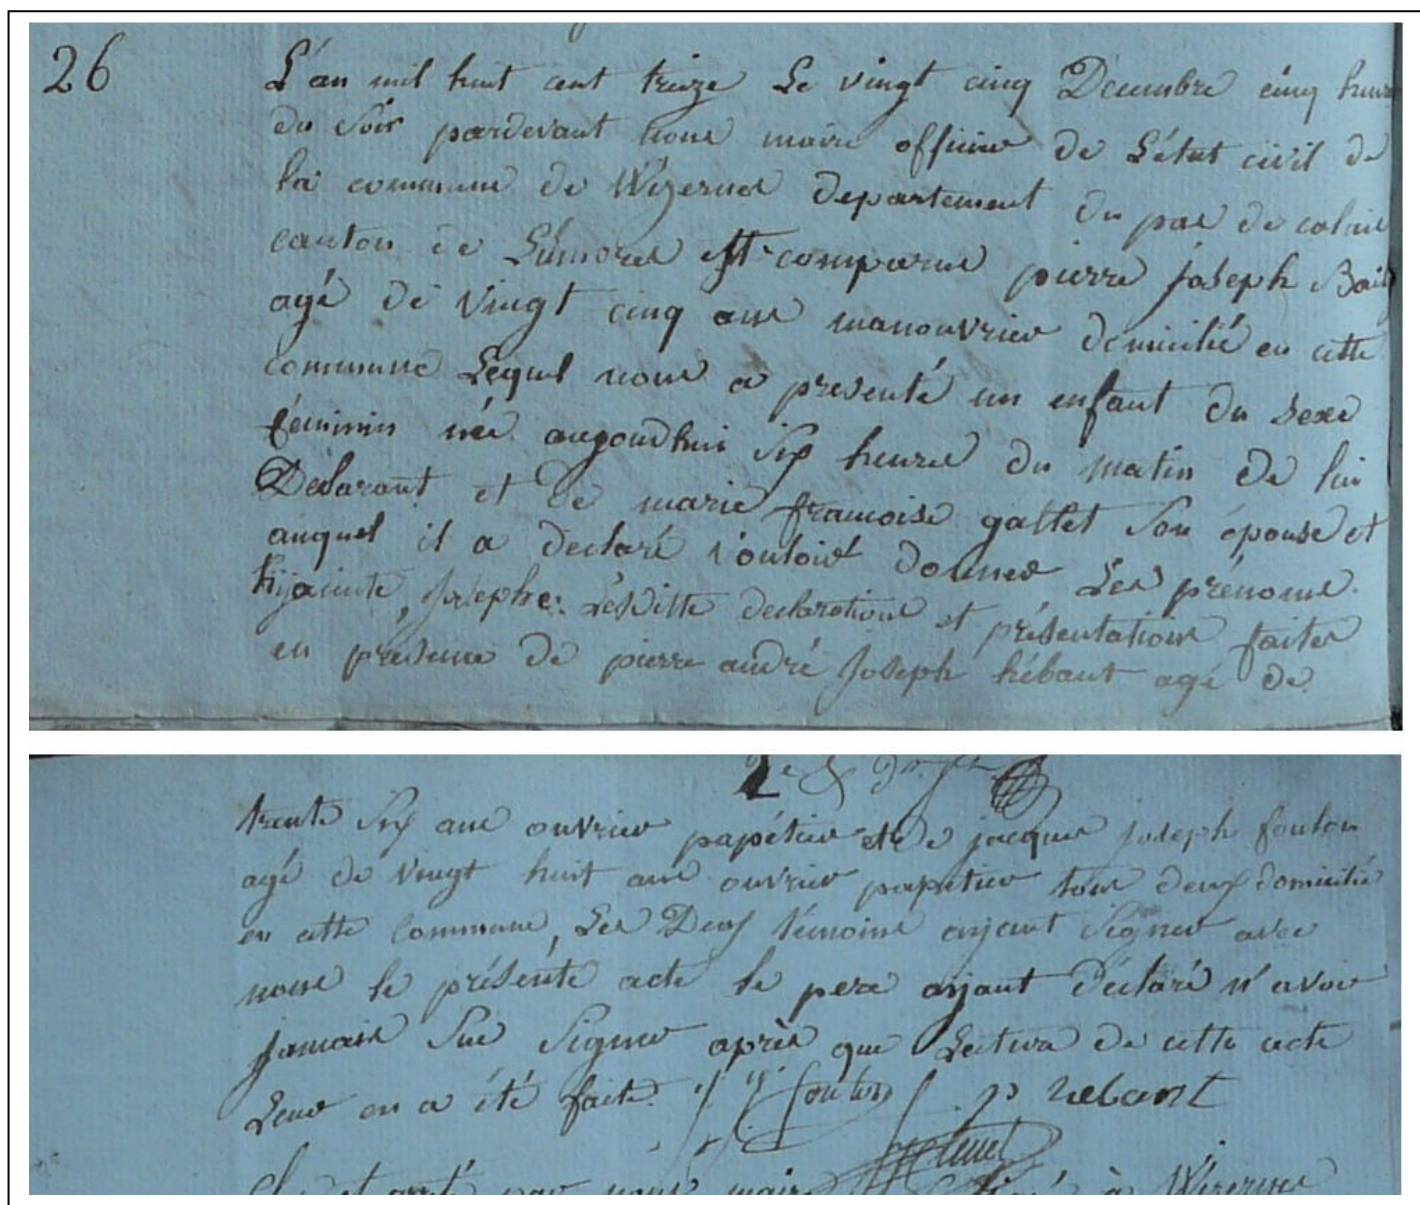 26
L'an mil huit cent treize Le vingt cinq Decembre cinq heure
du soir pardevant nous maire officier de L'état civil de
la commune de Wizernes departement du pas de calais
canton de Lumbres est comparue pierre joseph
agé de vingt cinq ans manouvrier domicilié en cette
commune Lequel nous a presenté un enfant du sexe
féminin née aujourdhui six heures du matin de lui
Déclarant et de marie françoise gallet son épouse et
auquel il a declaré vouloir donner Les prénoms
hijacinte, josephe: Lesditte declarations et présentations faites
en présence de pierre andré joseph hébant agé de
trente six ans ouvrier papétier et de jacques joseph foulon
agé de vingt huit ans ouvrier papetier tous deux domicilié
en cette commune, Les Deux témoins ayant signer avec
nous le présente acte le pere ayant déclaré n'avoir
jamais sue signer après que Lecture de cette acte
Leur en a été faite. j j foulon p hebant
Clos et arrêté par nous maire à Wizernes